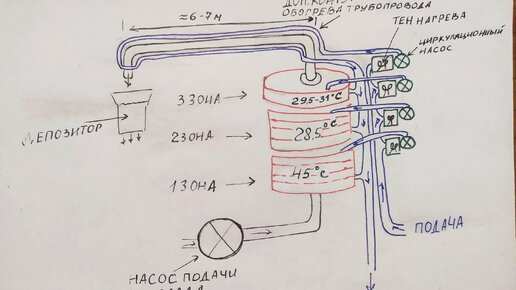 ≈6-7м
ОБОГРЕВА ТРУБОПРОВОДА
ТЕН НАГРЕВА
ЦИРКУЛЯЦИОННЫЙ
НАСОС
3 ЗОНА
29.5-31°С
ДЕПОЗИТОР
2 ЗОНА
28.5°С
1 ЗОНА
45°С
ПОДАЧА
НАСОС ПОДАЧИ